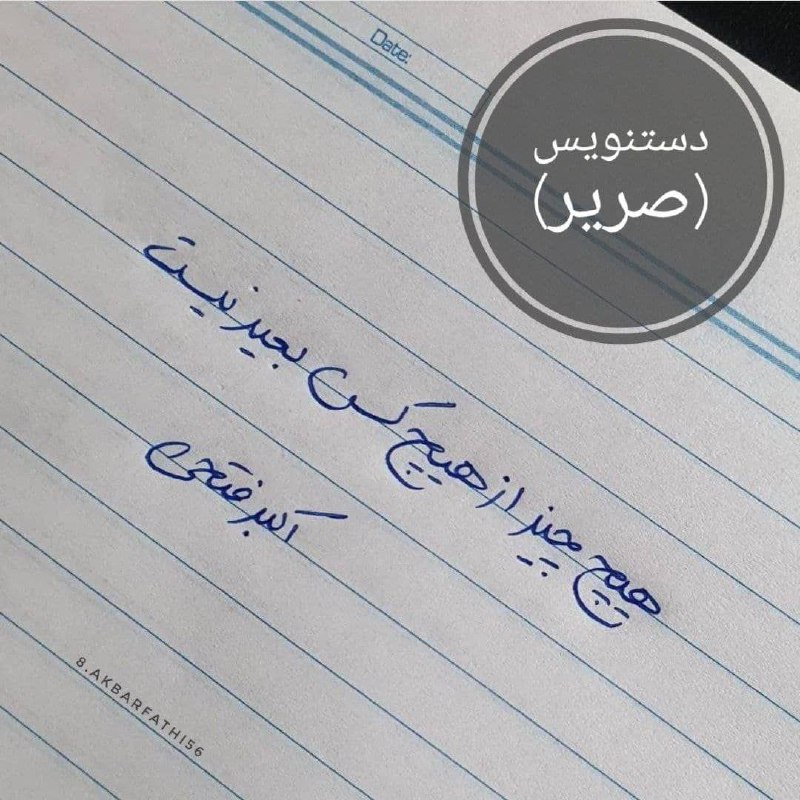 Date:
دستنویس
(صریر)
هیچ چیز از هیچ کس بعید نیست
اکبر فتحی
8.AKBARFATHI56